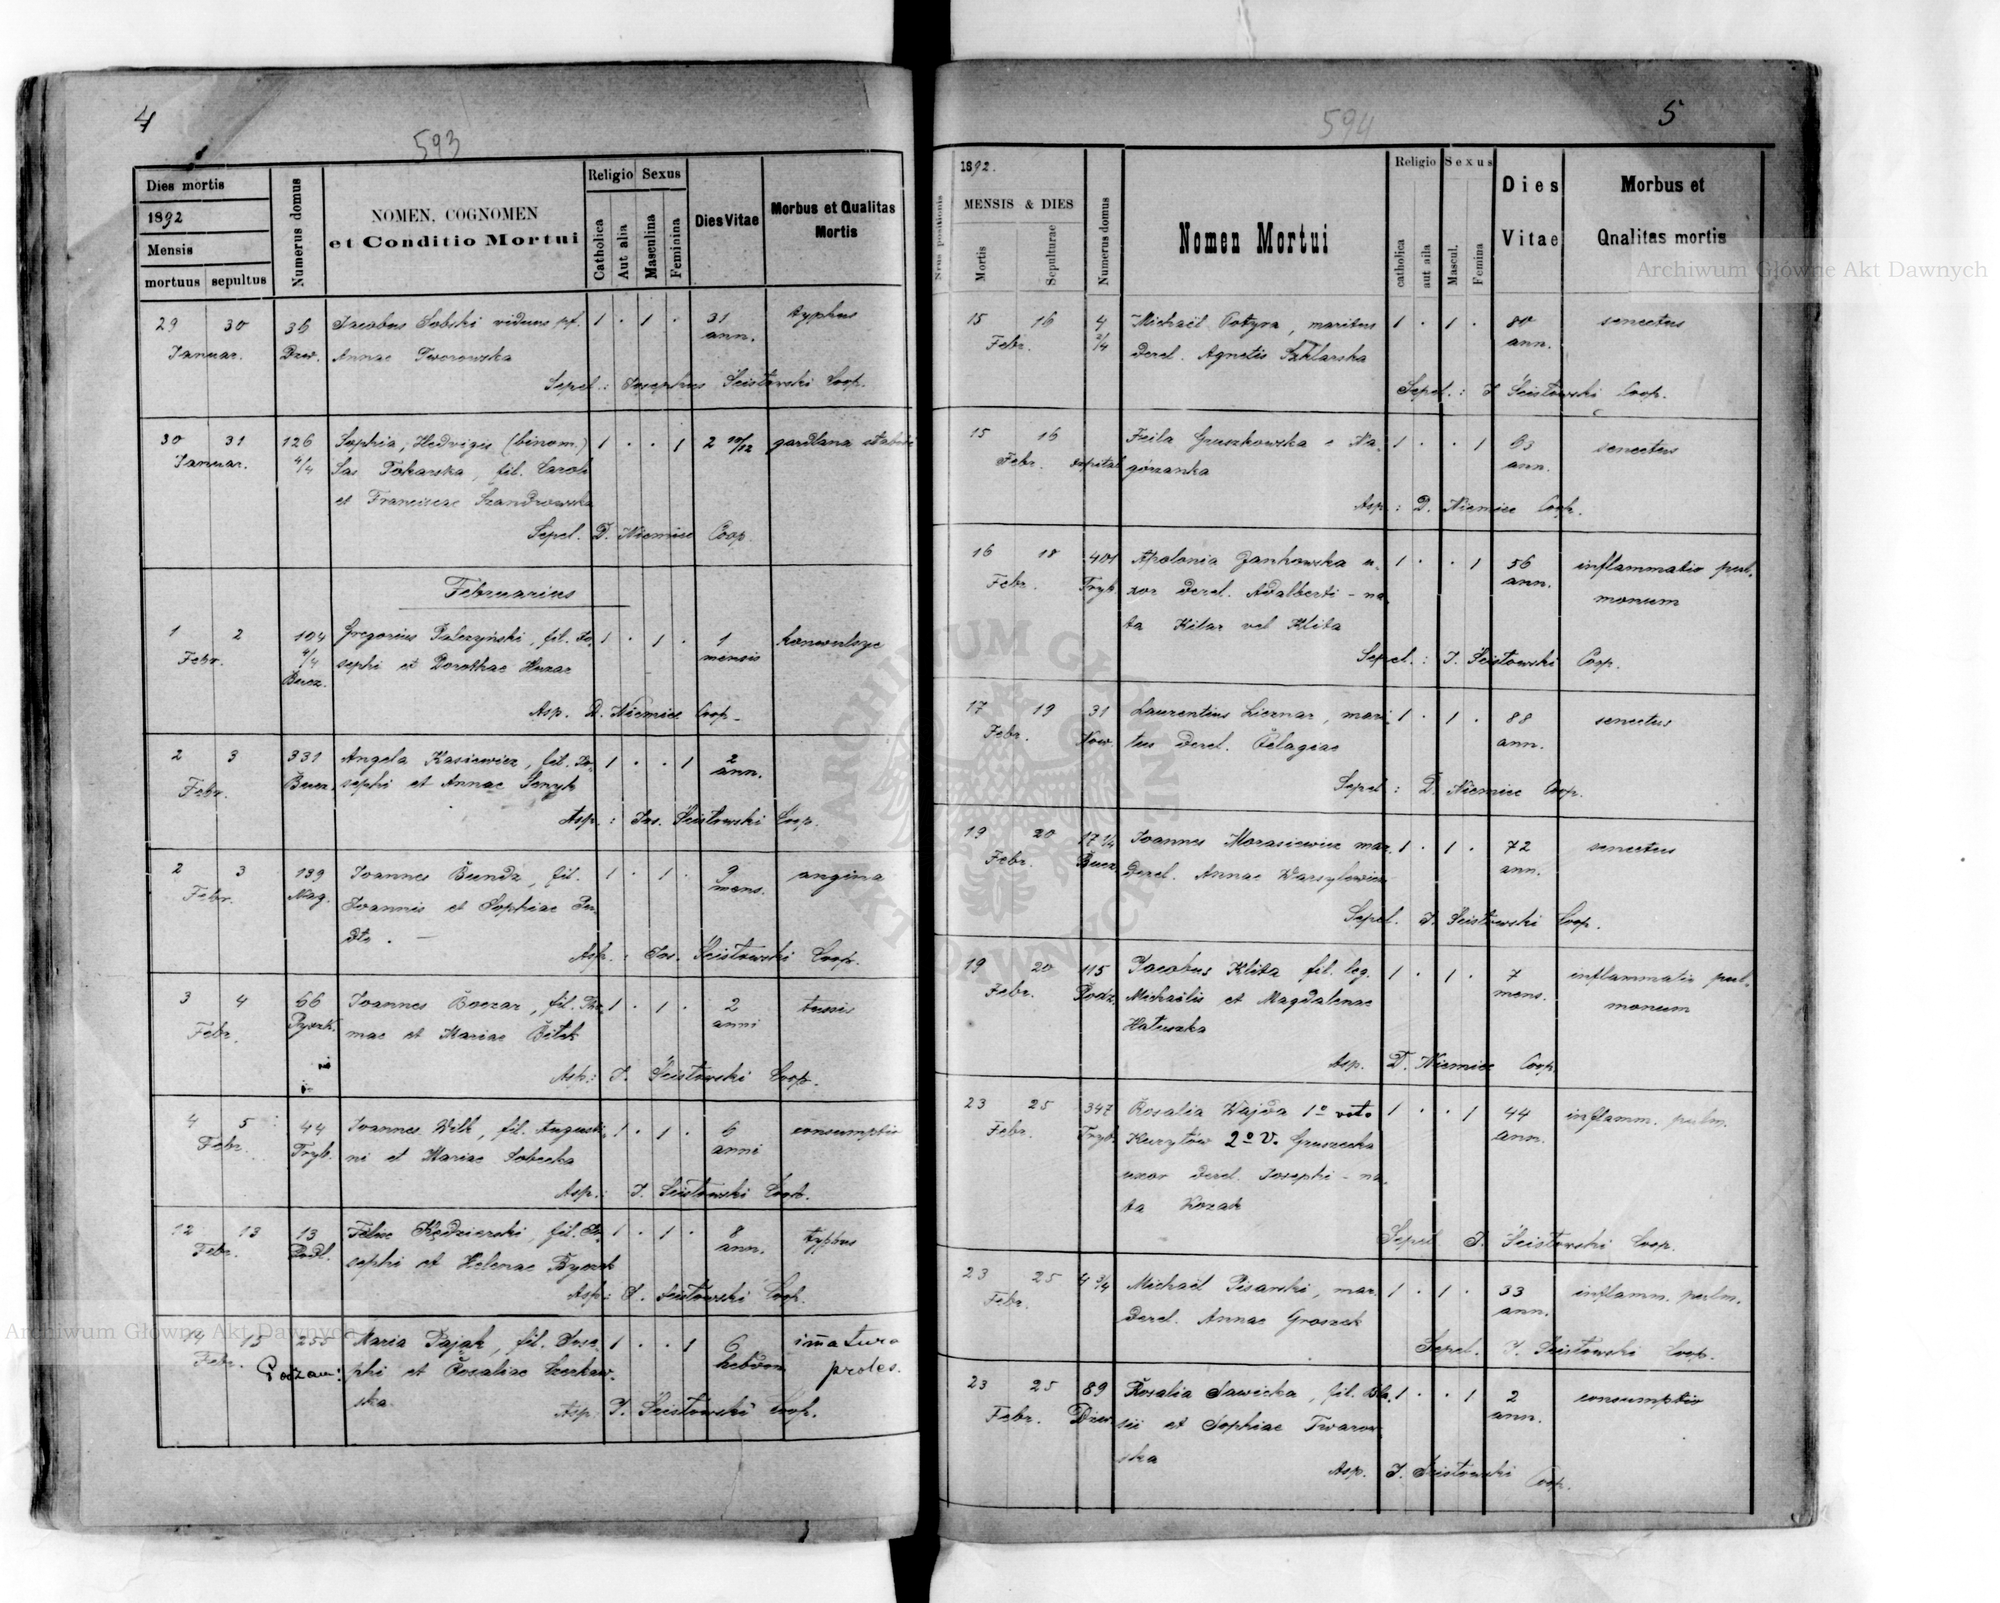 4
593
Dies mortis
1892
Mensis
mortuus sepultus
Numerus domus
NOMEN, COGNOMEN
et Conditio Mortui
Religio Sexus
Catholica
Aut alia
Masculina
Feminina
Dies Vitae
Morbus et Qualitas
Mortis
29 30 36 Jacobus Sobski viduus pf. 1 . 1 . 31 typhus
Januar. Dzw. Annae Tworowska ann.
Sepel.: Josephus Scisłowski Coop.
30 31 126 Sophia, Hedvigis (binom.) 1 . . 1 2 10/12 gardlana
Januar. 4/4 Sas Tokarska, fil. Caroli
et Franciscae Szandrowska
Sepel. D. Niemiec Coop
Februarius
1 2 104 Gregorius Palczyński, fil. Jo- 1 . 1 . 1 konwulsye
Febr. 4/4 sephi et Dorothae Huzar mensis
Bucz.
Asp. D. Niemiec Coop.
2 3 331 Angela Kasiewicz, fil. Jo- 1 . . 1 2
Febr. Bucz. sephi et Annae Senyk ann.
Asp.: Jos. Scisłowski Coop.
2 3 139 Joannes Bundz, fil. 1 . 1 . 9 angina
Febr. Nag. Joannis et Sophiae mens.
Asp.: Jos. Scisłowski Coop.
3 4 66 Joannes Boczar, fil. Tho- 1 . 1 . 2 tussis
Febr. Pyszk. mae et Mariae Bitek anni
Asp.: J. Scisłowski Coop.
4 5 44 Joannes Wilk, fil. Augusti- 1 . 1 . 6 consumptio
Febr. Tryb. ni et Mariae Sobecka anni
Asp.: J. Scisłowski Coop.
12 13 13 Felix Kędzierski, fil. Jo- 1 . 1 . 8 typhus
Febr. Podl. sephi et Helenae ann.
Asp.: J. Scisłowski Coop.
14 15 255 Maria Pająk, fil. Jose- 1 . . 1 6 imatura
Febr. Podzam: phi et Rosaliae Czerkaw- hebdom proles.
ska
Asp. J. Scisłowski Coop.
5
594
Nrus positionis
1892.
MENSIS & DIES
Mortis
Sepulturae
Numerus domus
Nomen Mortui
Religio Sexus
catholica
aut aila
Mascul.
Femina
Dies
Vitae
Morbus et
Qnalitas mortis
15 16 4 Michaël Potyra, maritus 1 . 1 . 80 senectus
Febr. 2/4 derel. Agnetis Szklarska ann.
Sepel.: J Scisłowski Coop.
15 16 Feila Gruszkowska e Na- 1 . . 1 63 senectus
Febr. ospital górzanka ann.
Asp.: D. Niemiec Coop.
16 18 401 Apolonia Jankowska u- 1 . . 1 56 inflammatio pul-
Febr. Tryb. xor derel. Adalberti - na- ann. monum
ta Kitar vel Klita
Sepel.: J. Scisłowski Coop.
17 19 31 Laurentius Licznar, mari- 1 . 1 . 88 senectus
Febr. Now. tus derel. Pelagiae ann.
Sepel: D. Niemiec Coop.
19 20 17 1/4 Joannes Morasiewicz mar. 1 . 1 . 72 senectus
Febr. Bucz. derel. Annae Warsylewicz ann.
Sepel. J. Scisłowski Coop.
19 20 115 Jacobus Klita fil. leg. 1 . 1 . 7 inflammatio pul-
Febr. Podz. Michaëlis et Magdalenae mens. monum
Hałuszka
Asp. D. Niemiec Coop.
23 25 347 Rosalia Wajda 1º voto 1 . . 1 44 inflamm. pulm.
Febr. Tryb. Kurytów 2º V. Gruszecka ann.
uxor derel. Josephi - na-
ta Kozak
Sepel J. Scisłowski Coop.
23 25 4 3/4 Michaël Pisarski, mar. 1 . 1 . 33 inflamm. pulm.
Febr. derel. Annae Groszek ann.
Sepel. J. Scisłowski Coop.
23 25 89 Rosalia Sawicka, fil. Bla- 1 . . 1 2 consumptio
Febr. Dzw. sii et Sophiae Twarow- ann.
ska
Asp. J. Scisłowski Coop.
Archiwum Główne Akt Dawnych
Archiwum Główne Akt Dawnych
ARCHIWUM GŁÓWNE AKT DAWNYCH